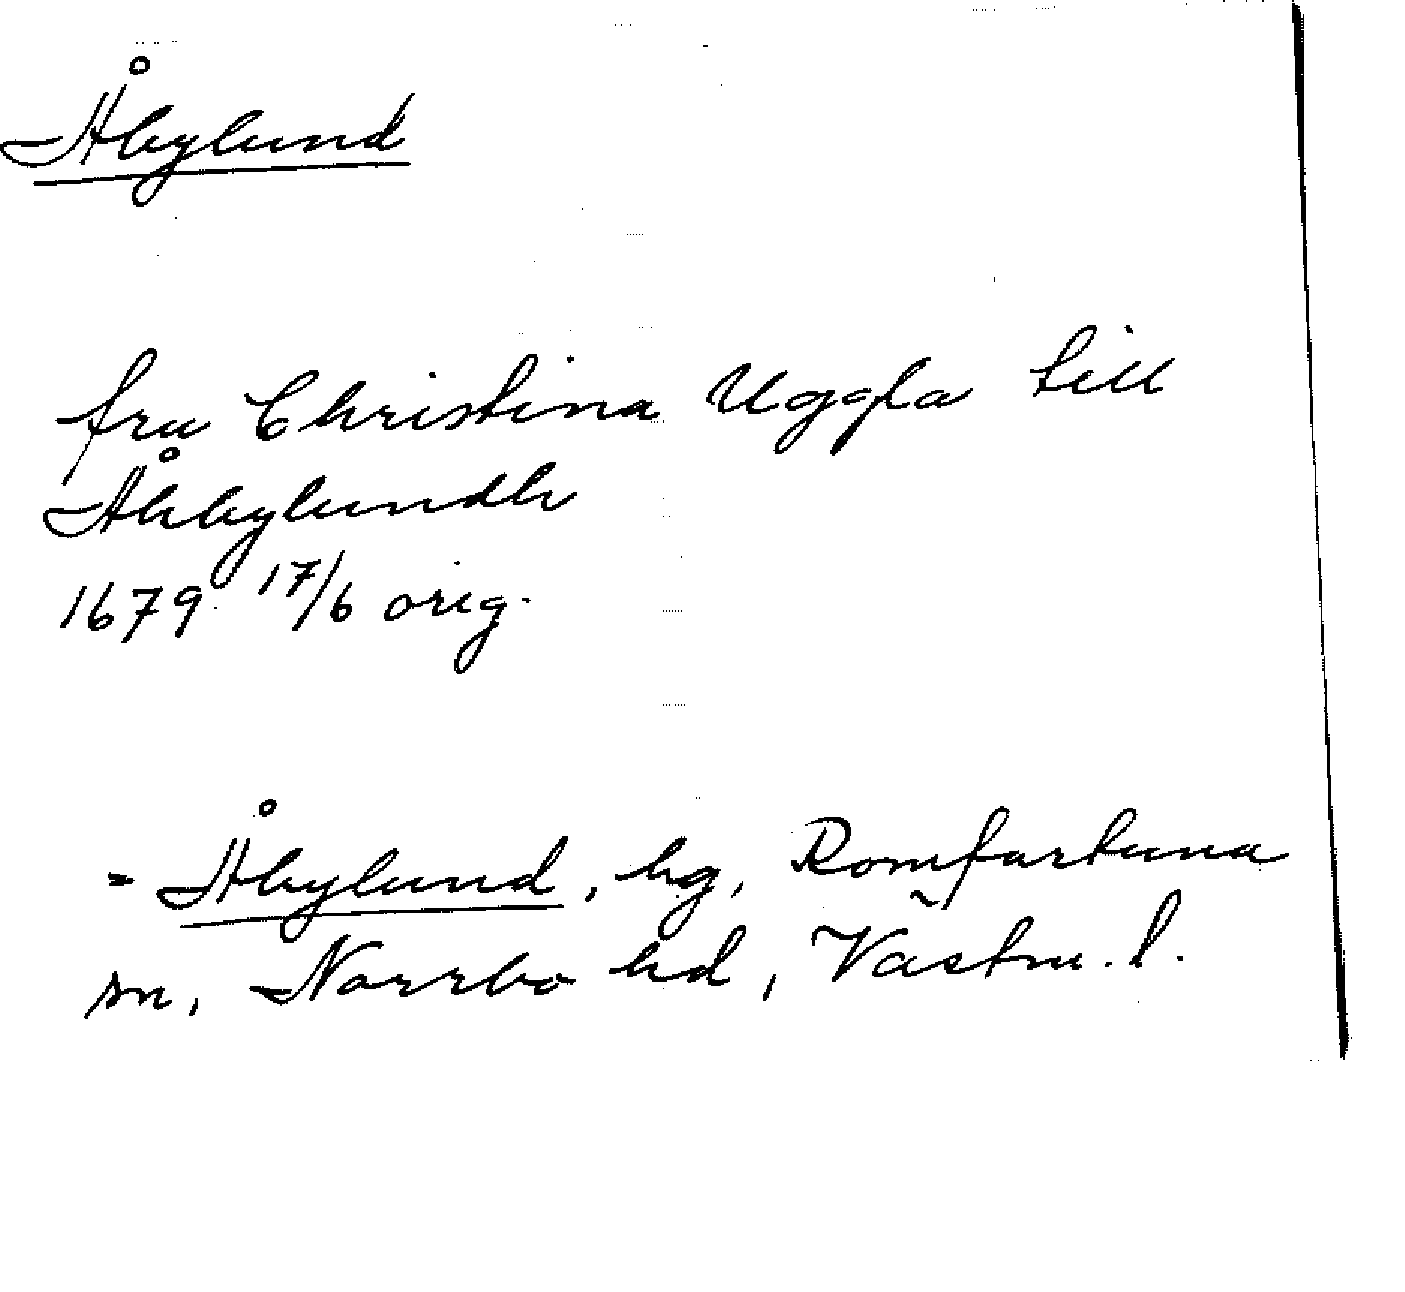 Åbylund
fru Christina Uggla till
Åhbylundh
1679 17/6 orig.
= Åbylund, hg, Romfartuna
sn, Norrbo hd, Västm. l.